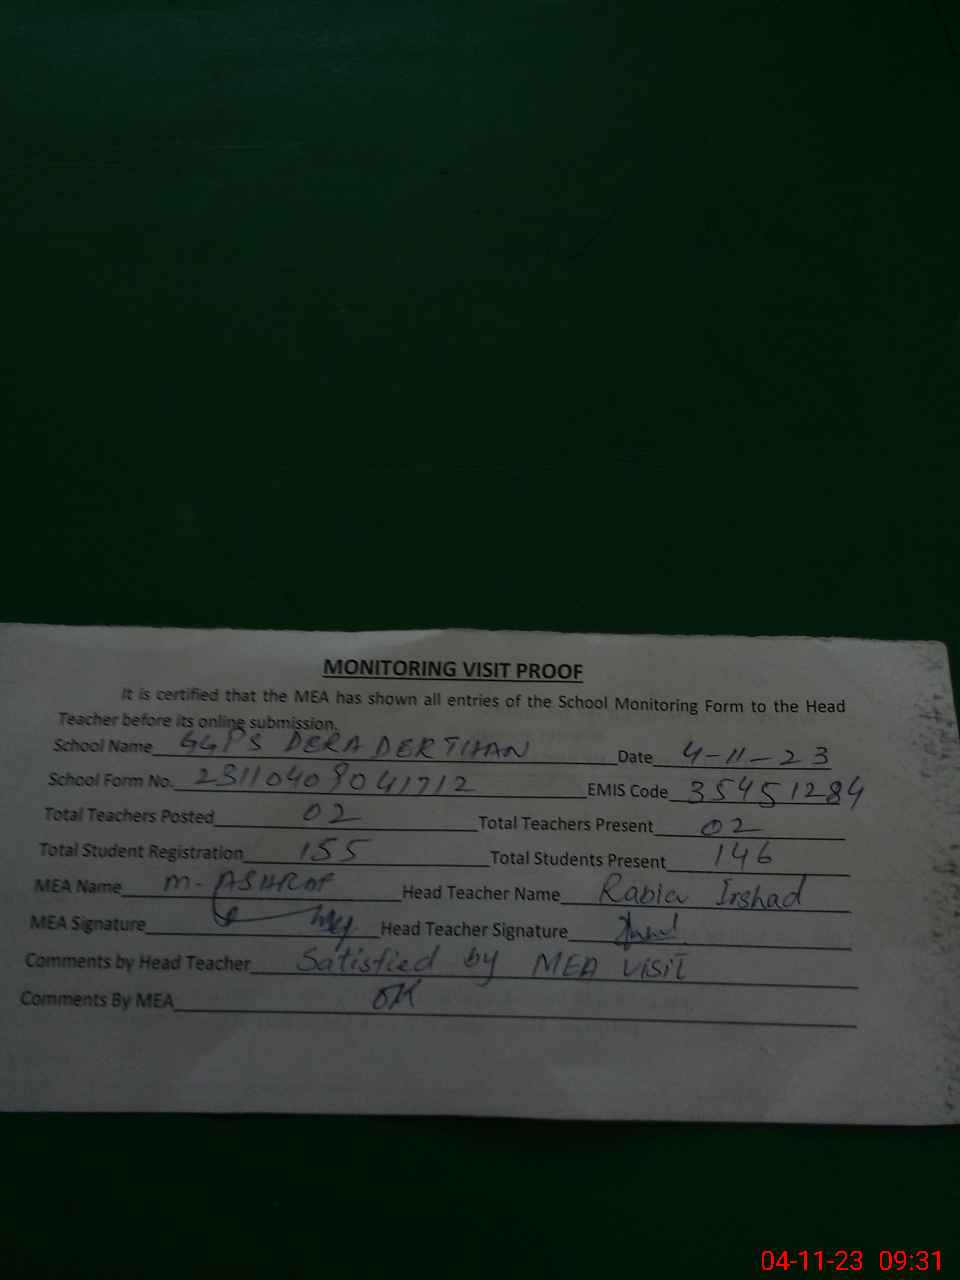 MONITORING VISIT PROOF
It is certified that the MEA has shown all entries of the School Monitoring Form to the Head
Teacher before its online submission.
School Name GGPS DERA DERTHAN Date 4-11-23
School Form No. 23110409041712 EMIS Code 35451284
Total Teachers Posted 02 Total Teachers Present 02
Total Student Registration 155 Total Students Present 146
MEA Name M-ASHRAF Head Teacher Name Rabia Irshad
MEA Signature Head Teacher Signature
Comments by Head Teacher Satisfied by MEA visit
Comments By MEA OK
04-11-23 09:31